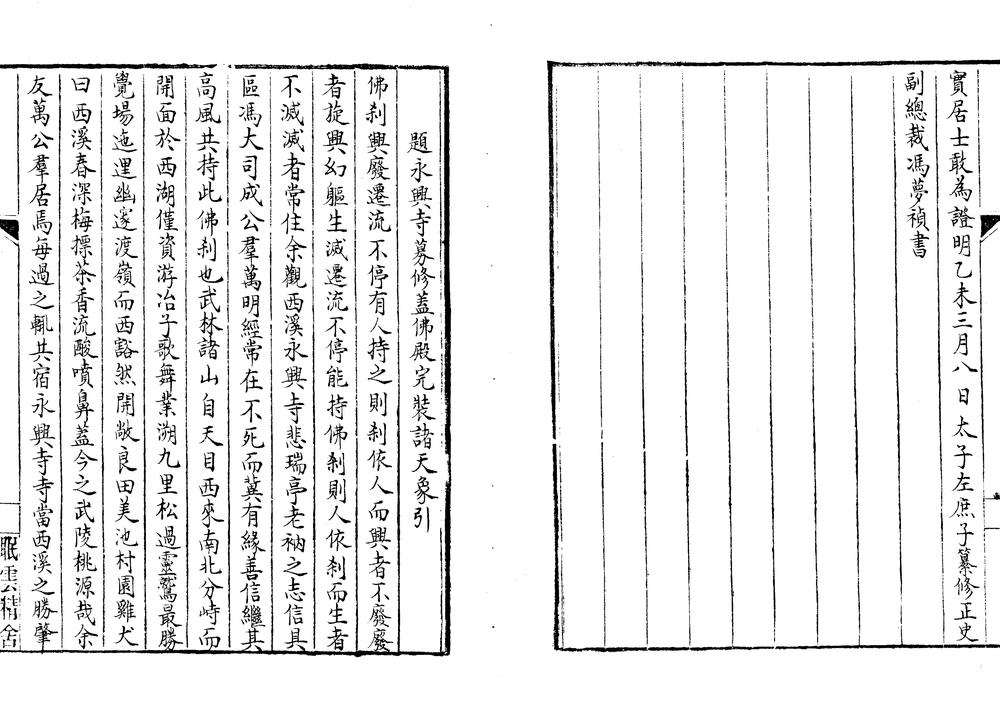 實居士敢為證明乙未三月八日太子左庶子纂修正史
副總裁馮夢禎書
題永興寺募修蓋佛殿完裝諸天象引
佛刹興廢遷流不停有人持之則刹依人而興者不廢廢
者旋興幻軀生滅遷流不停能持佛刹則人依刹而生者
不滅滅者常住余觀西溪永興寺悲瑞亭老衲之志信具
區馮大司成公羣萬明經常在不死而冀有緣善信繼其
高風共持此佛刹也武林諸山自天目西來南北分峙而
開面於西湖僅資游冶子歌舞業溯九里松過靈鷲最勝
覺場迤逕幽邃渡嶺而西豁然開敞良田美池村園雞犬
曰西溪春深梅摽茶香流酸噴鼻蓋今之武陵桃源哉余
友萬公羣居焉每過之輒共宿永興寺寺當西溪之勝肇
眠雲精舍